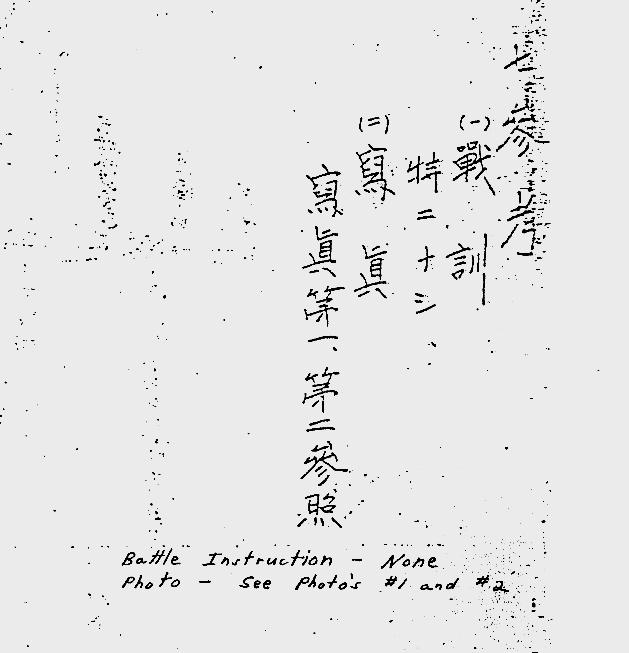 七、參考
(一)戰訓
特ニナシ
(二)寫眞
寫眞第一、第二參照
Battle Instruction - None
Photo - See Photo's #1 and #2